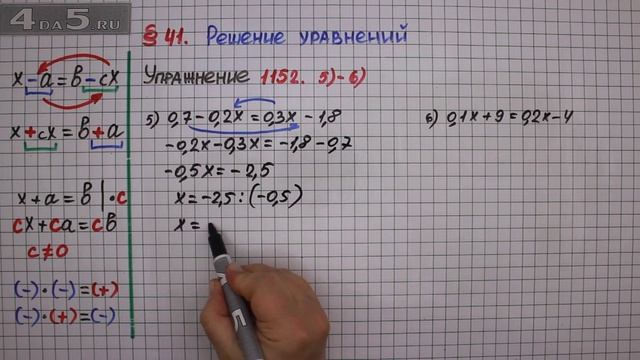 4DA5.RU
§ 41. Решение уравнений
Упражнение 1152. 5)-6)
x-a=b-cx
x+cx=b+a
x+a=b|·c
cx+ca=cb
c≠0
(-)·(-)=(+)
(-)·(+)=(-)
5) 0,7-0,2x=0,3x-1,8
-0,2x-0,3x=-1,8-0,7
-0,5x=-2,5
x=-2,5:(-0,5)
x=
6) 0,1x+9=0,2x-4